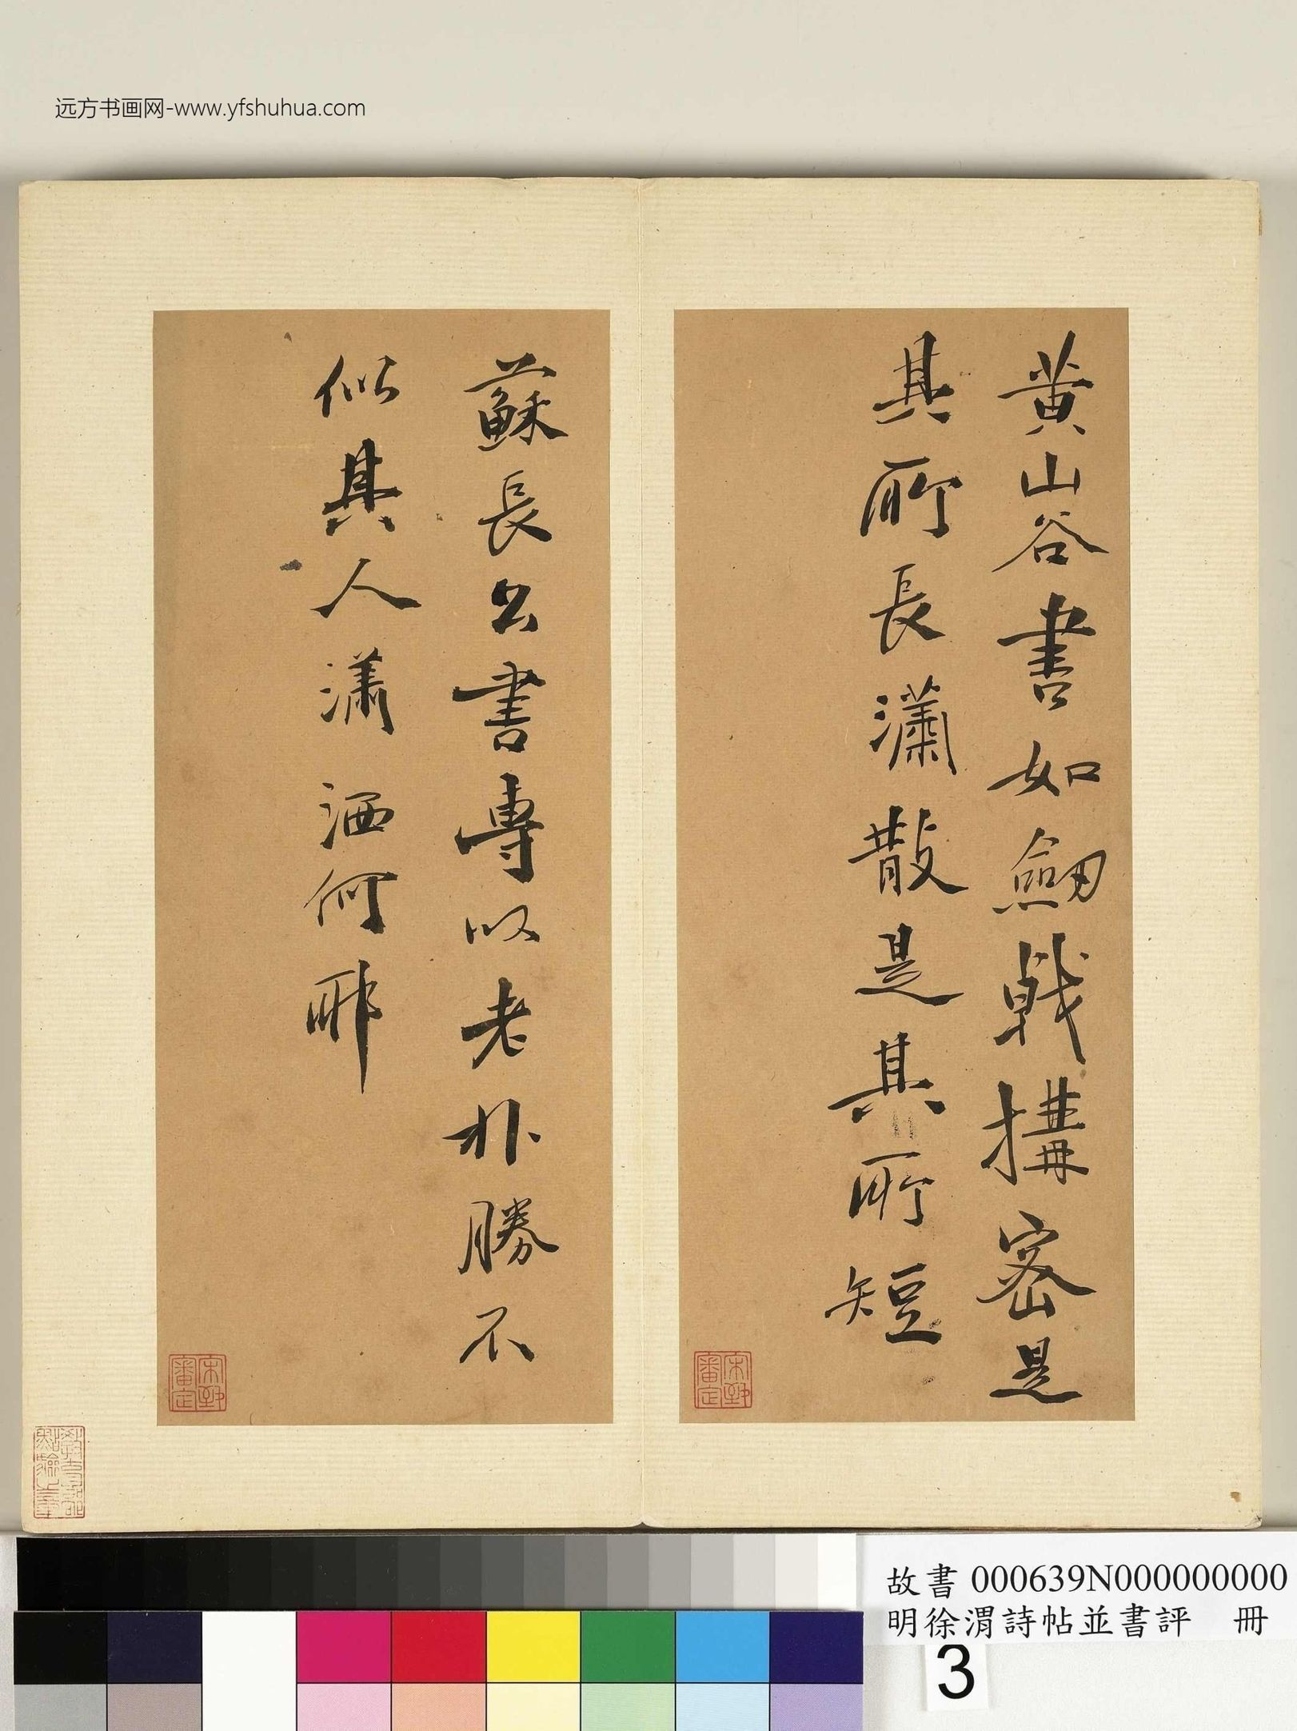 远方书画网-www.yfshuhua.com
黄山谷書如劒戟搆密是
其所長瀟散是其所短
蘇長公書專以老朴勝不
似其人瀟洒何耶
故書 000639N000000000
明徐渭詩帖並書評 冊
3